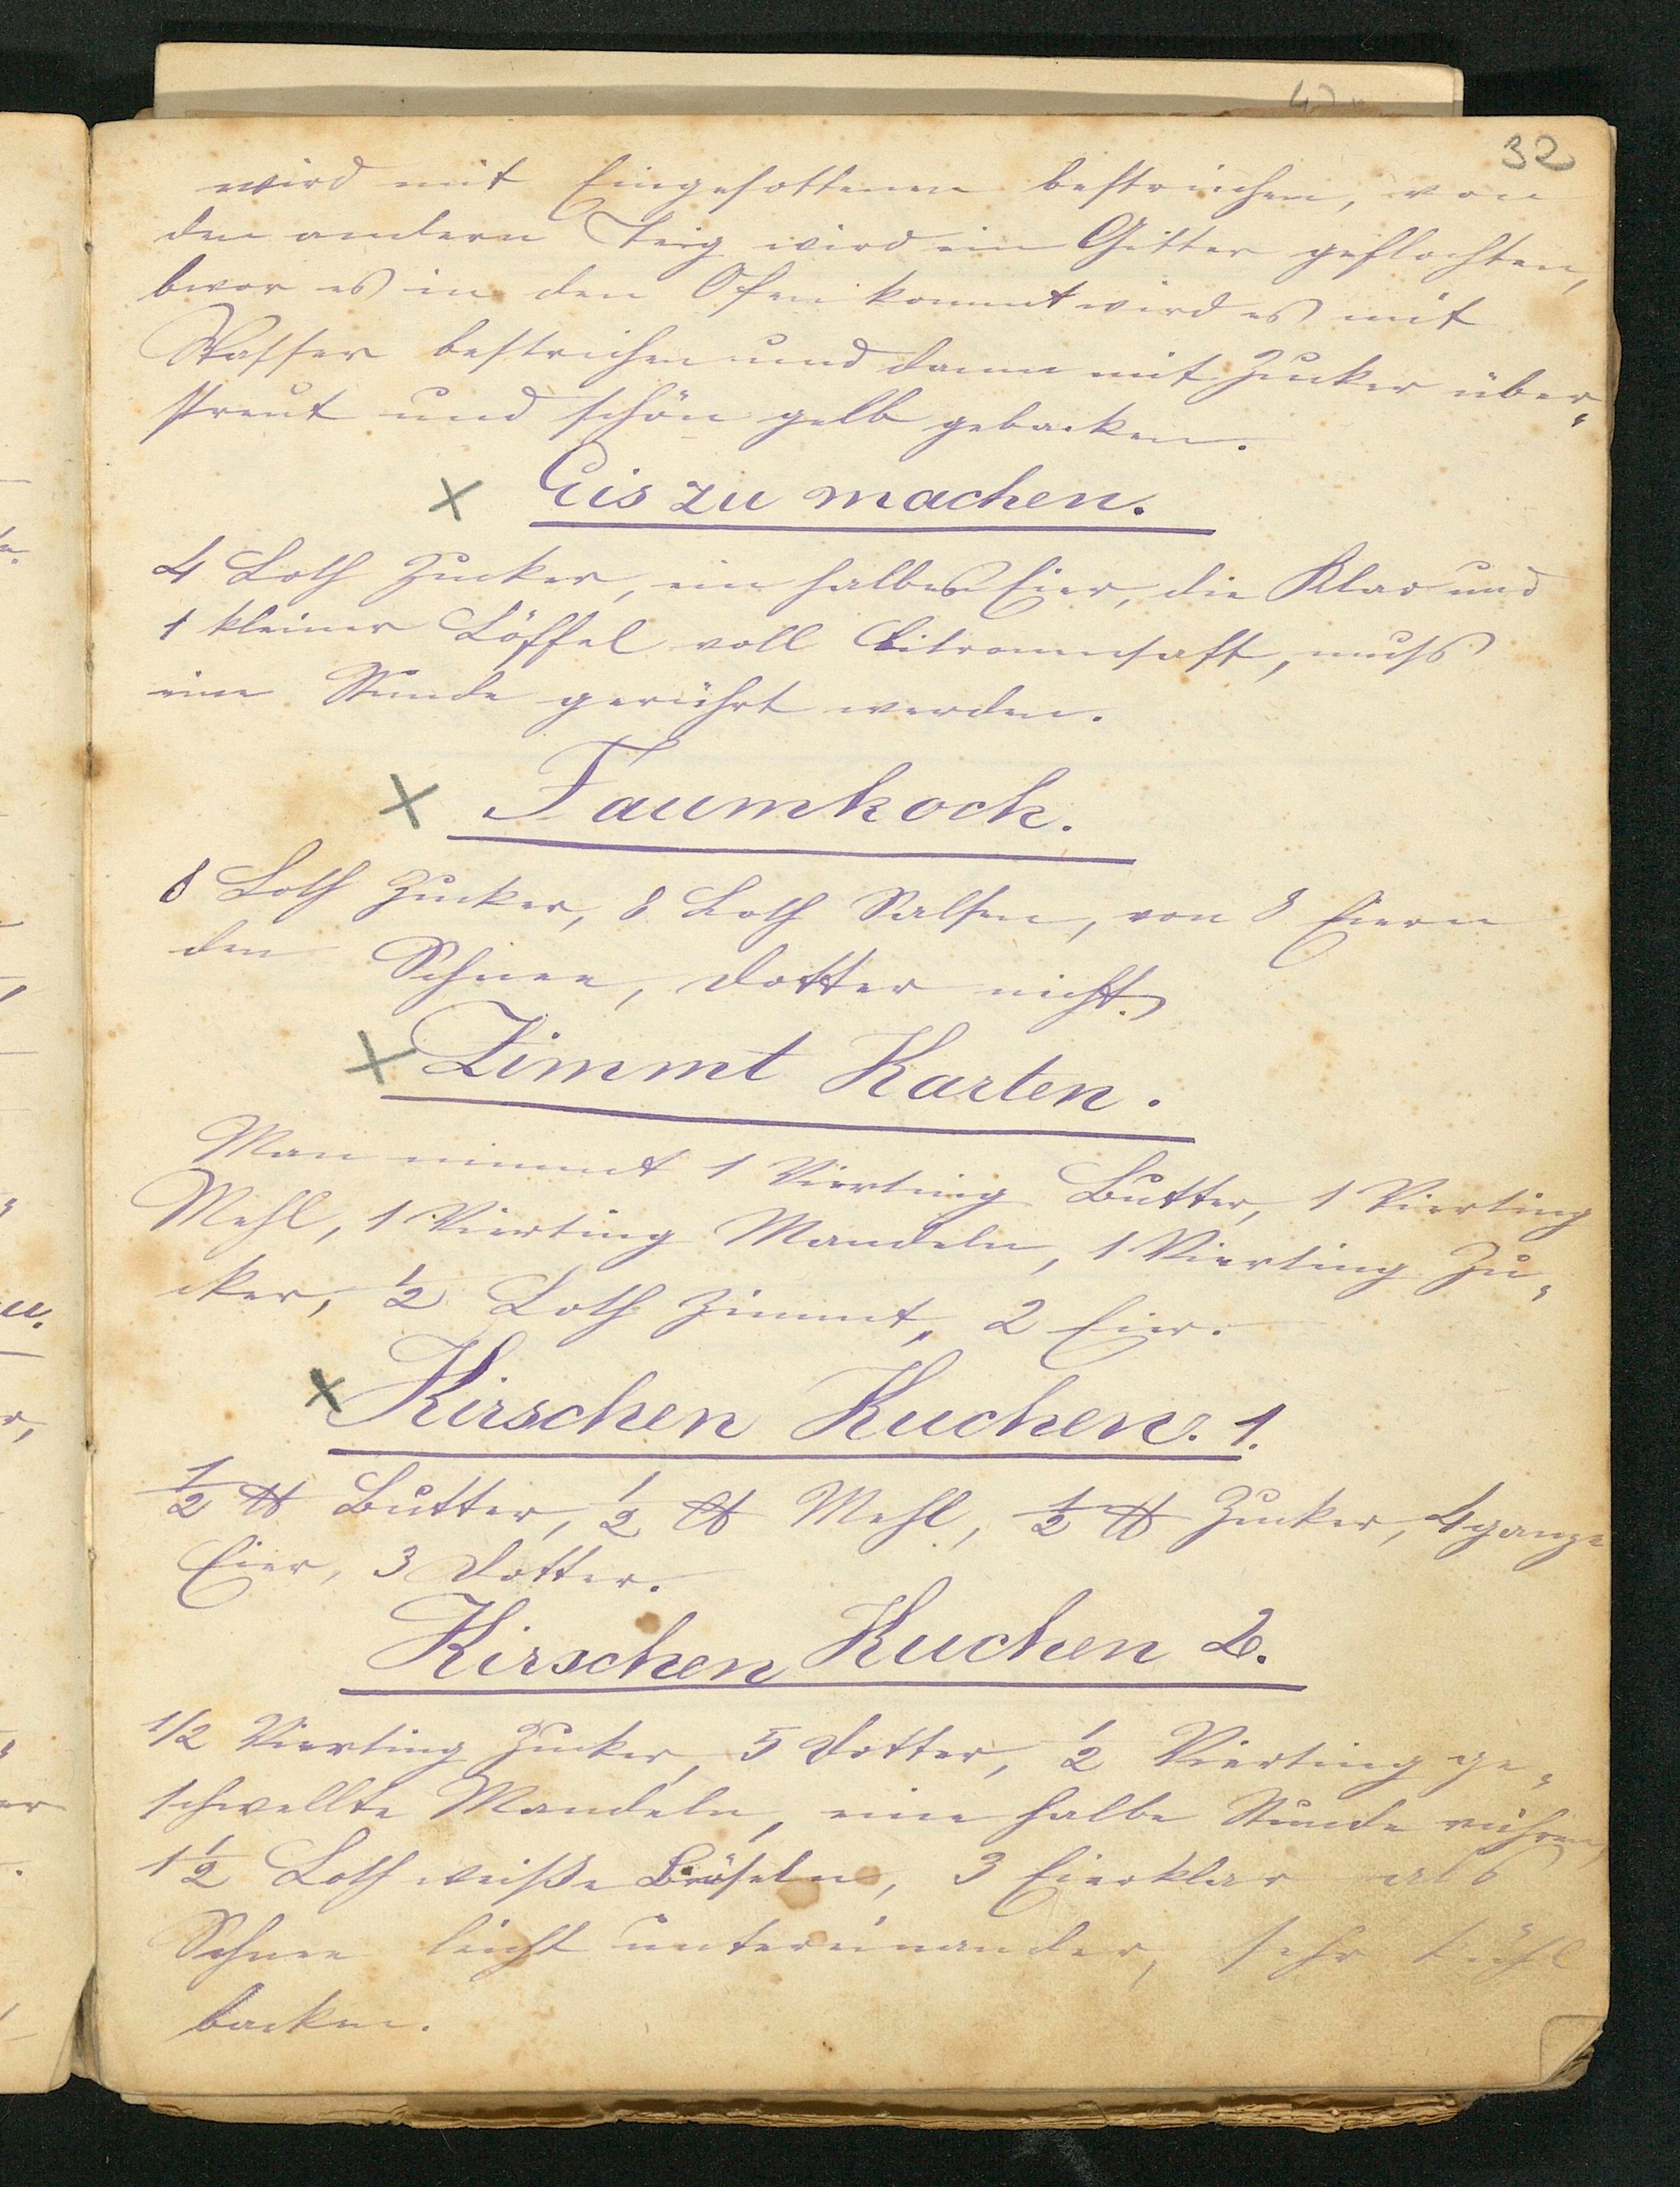 32
wird mit Eingesottenen bestrichen, von
den andern Teig wird ein Gitter geflochten,
bevor es in den Ofen kommt wird es mit
Wasser bestrichen und dann mit Zucker über-
streut und schön gelb gebacken.
x Eis zu machen.
4 Loth Zucker, ein halbes Eier, die Klar und
1 kleiner Löffel voll Citronensaft, muß
eine Stunde gerührt werden.
x Faumkoch.
8 Loth Zucker, 8 Loth Salsen, von 8 Eiern
den Schnee, Dotter nicht.
x Zimmt Karten.
Man nimmt 1 Vierting Butter, 1 Vierting
Mehl, 1 Vierting Mandeln, 1 Vierting Zu-
cker, 1/2 Loth Zimmt, 2 Eier.
x Kirschen Kuchen. 1.
1/2 ℔ Butter, 1/2 ℔ Mehl, 1/2 ℔ Zucker, 4 ganze
Eier, 3 Dotter.
Kirschen Kuchen 2.
1/2 Vierting Zucker, 5 Dotter, 1/2 Vierting ge-
schwellte Mandeln, eine halbe Stunde rühren,
1 1/2 Loth weiße Bröseln, 3 Eierklar als
Schnee leicht untereinander, sehr kühl
backen.